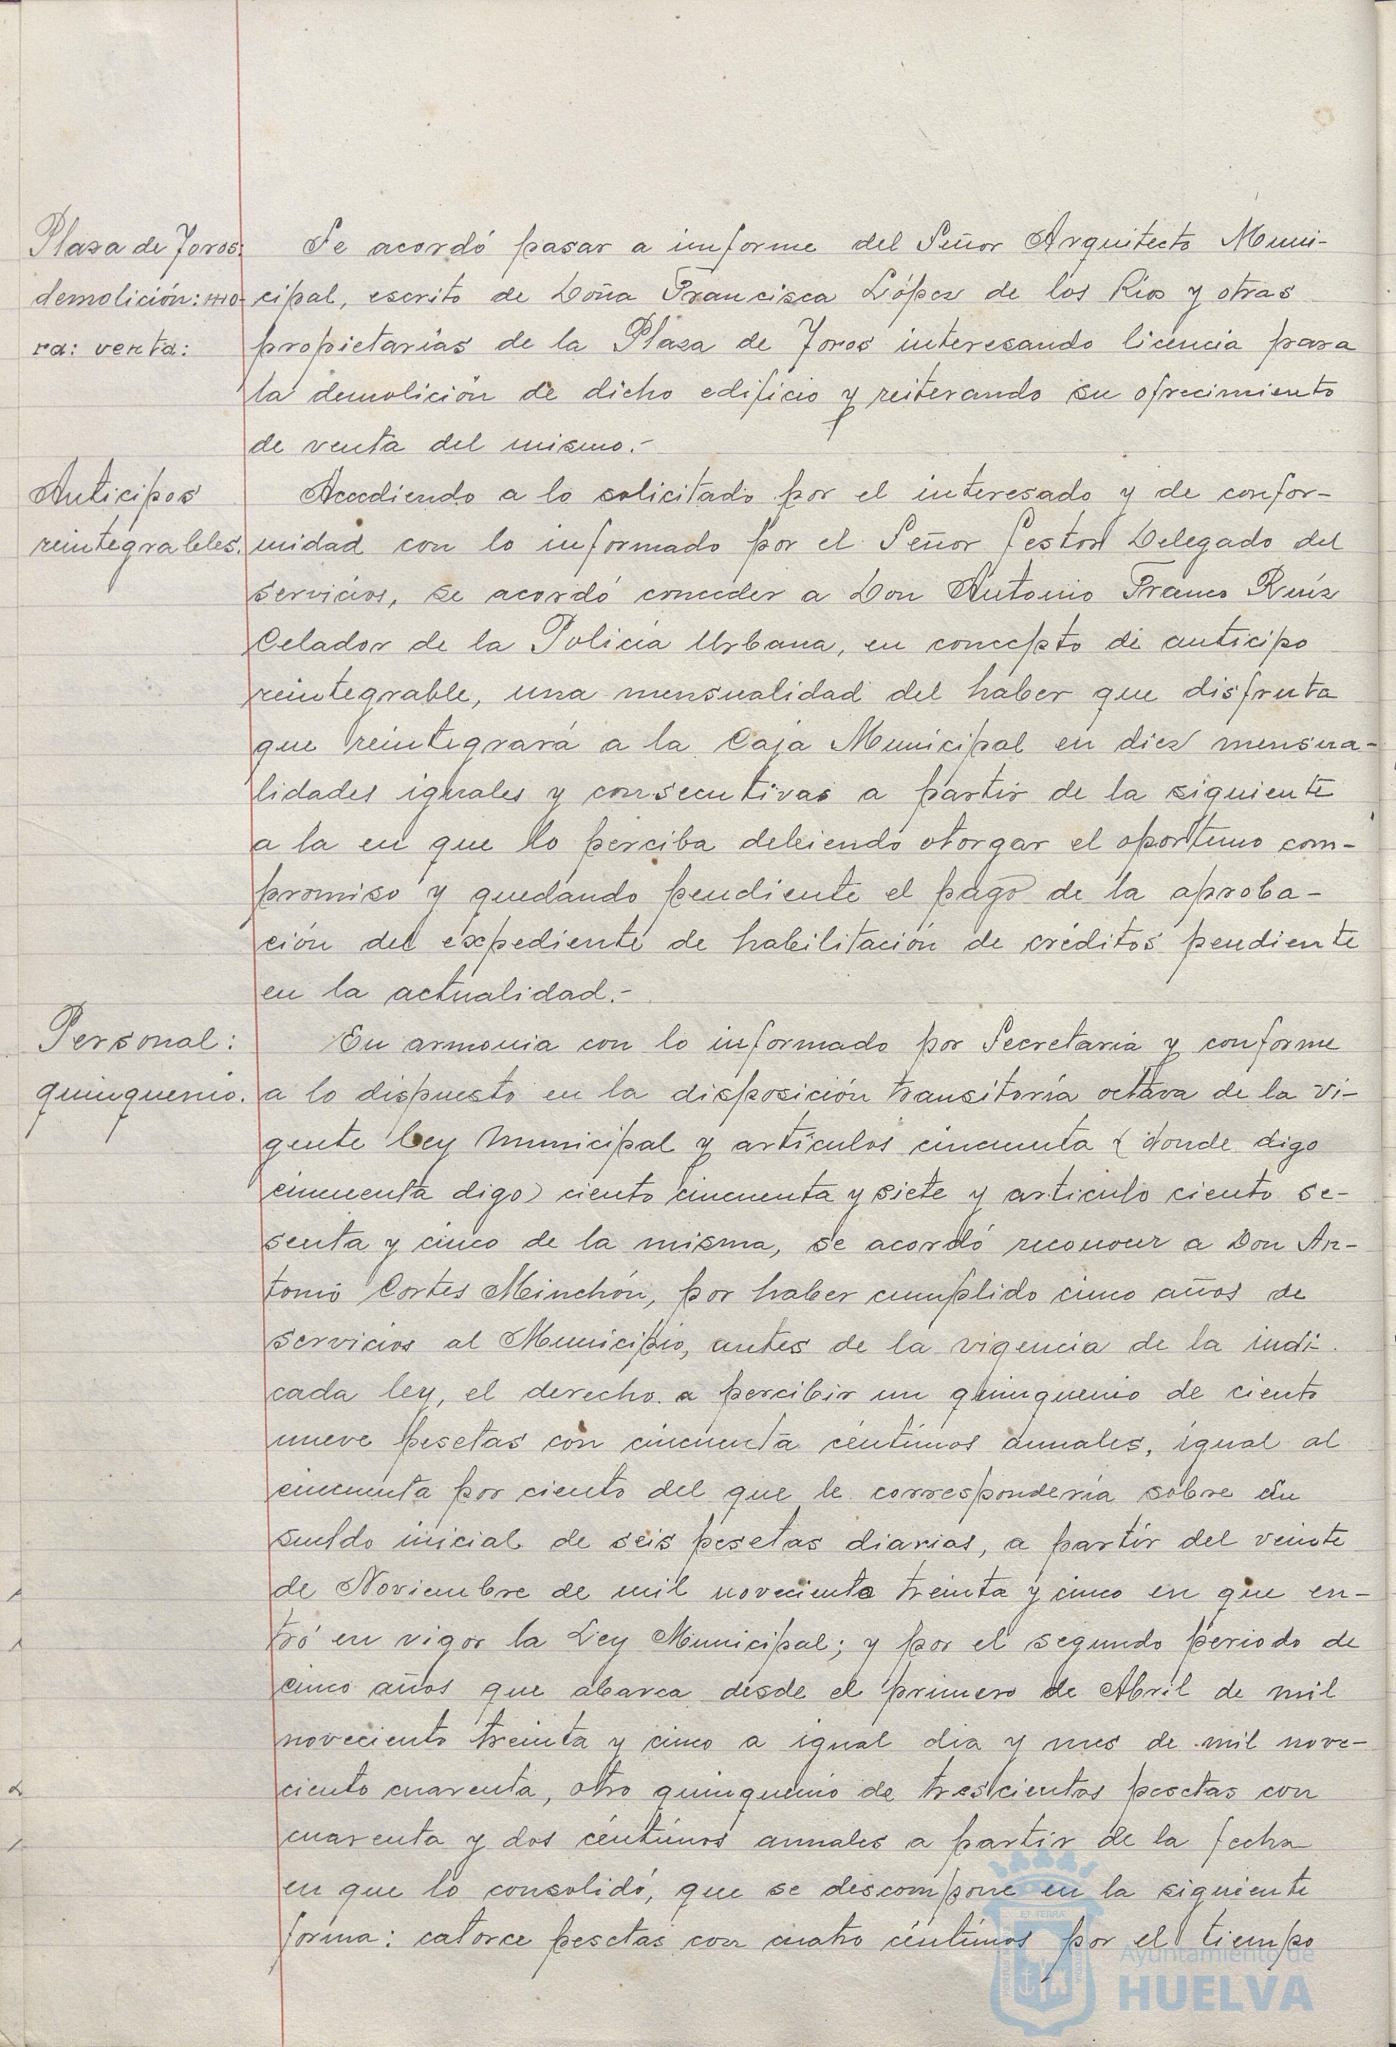 Plaza de Toros:
demolición: mo-
ra: venta:
Se acordó pasar a informe del Señor Arquitecto Muni-
cipal, escrito de Doña Francisca López de los Ríos y otras
propietarias de la Plaza de Toros interesando licencia para
la demolición de dicho edificio y reiterando su ofrecimiento
de venta del mismo.-
Anticipos
reintegrables.
Accediendo a lo solicitado por el interesado y de confor-
midad con lo informado por el Señor Gestor Delegado del
servicios, se acordó conceder a Don Antonio Franco Ruíz
Celador de la Policía Urbana, en concepto de anticipo
reintegrable, una mensualidad del haber que disfruta
que reintegrará a la Caja Municipal en diez mensua-
lidades iguales y consecutivas a partir de la siguiente
a la en que lo perciba debiendo otorgar el oportuno com-
promiso y quedando pendiente el pago de la aproba-
ción del expediente de habilitación de créditos pendiente
en la actualidad.-
Personal:
quinquenio.
En armonia con lo informado por Secretaria y conforme
a lo dispuesto en la disposición transitoría octava de la vi-
gente ley municipal y artículos cincuenta (donde digo
cincuenta digo) ciento cincuenta y siete y articulo ciento se-
senta y cinco de la misma, se acordó reconocer a Don An-
tonio Cortes Minchón, por haber cumplido cinco años de
servicios al Municipio, antes de la vigencia de la indi-
cada ley, el derecho a percibir un quinquenio de ciento
nueve pesetas con cincuenta céntimos anuales, igual al
cincuenta por ciento del que le correspondería sobre un
sueldo inicial de seis pesetas diarias, a partir del veinte
de Noviembre de mil noveciento treinta y cinco en que en-
tró en vigor la Ley Municipal; y por el segundo periodo de
cinco años que abarca desde el primero de Abril de mil
noveciento treinta y cinco a igual dia y mes de mil nove-
ciento cuarenta, otro quinquenio de trescientas pesetas con
cuarenta y dos céntimos anuales a partir de la fecha
en que lo consolidó, que se descompone en la siguiente
forma: catorce pesetas con cuatro céntimos por el tiempo
Ayuntamiento de
HUELVA